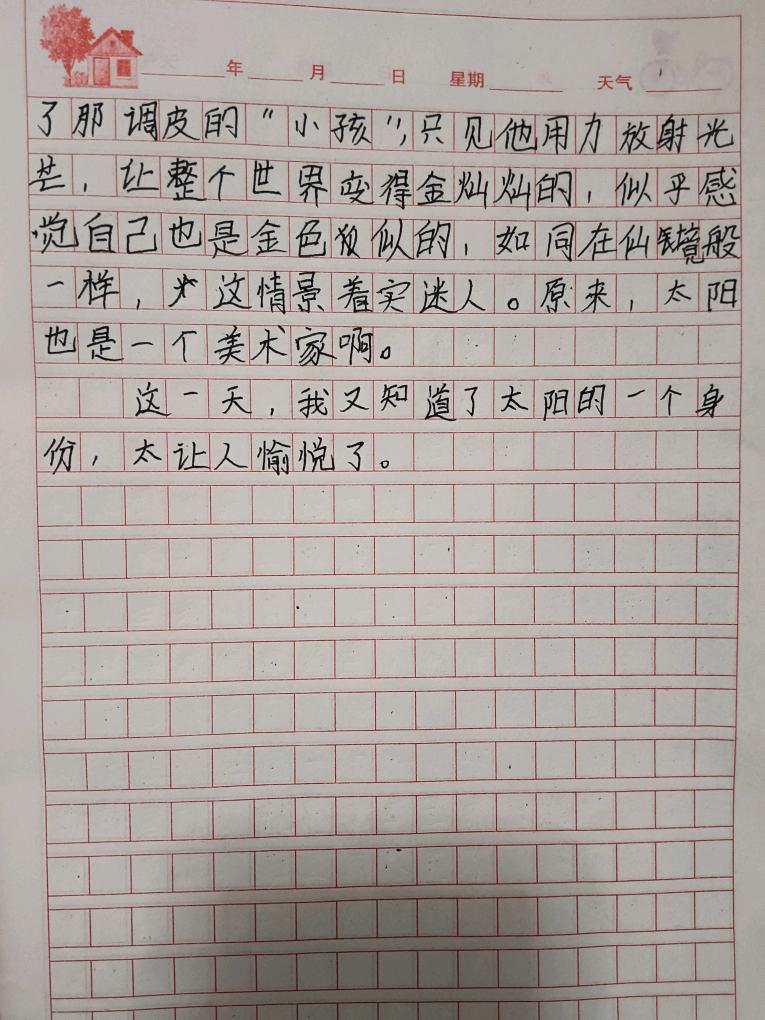 年 月 日 星期 天气
了那调皮的“小孩”，只见他用力放射光
芒，让整个世界变得金灿灿的，似乎感
觉自己也是金色似的，如同在仙境般
一样，这情景着实迷人。原来，太阳
也是一个美术家啊。
这一天，我又知道了太阳的一个身
份，太让人愉悦了。